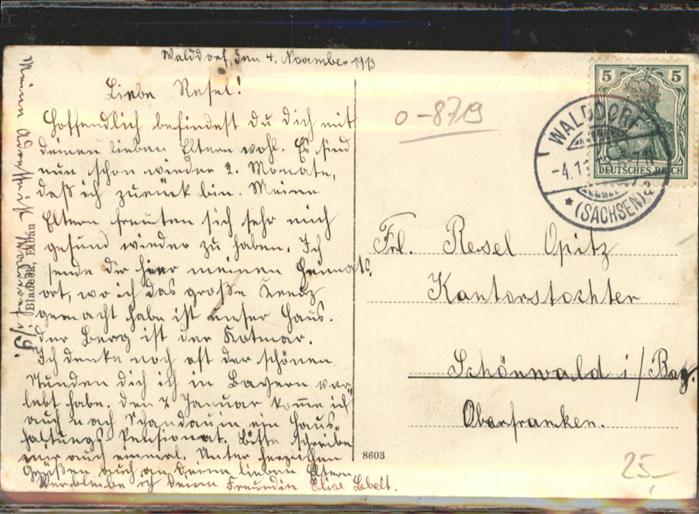 Walddorf, den 4. November 1913
Liebe Resel!
Hoffendlich befindest du dich mit
deinen lieben Eltern wohl. Es sind
nun schon wieder 2. Monate,
daß ich zurück bin. Meine
Eltern freuten sich sehr mich
gesund wieder zu haben. Ich
sende dir hier meinen Heimats
ort, wo ich das große Kreuz
gemacht habe ist unser Haus.
Der Berg ist der Kotmar.
Ich denke noch oft der schönen
Stunden die ich in Bayern ver
lebt habe. Den 2 Januar komme ich
auch nach Schandau in ein Haus
haltungs Pensionat. Bitte schreibe
mir auch einmal. Unter herzlichen
Grüßen auch an deine lieben Eltern
Verbleibe ich deine Freundin Elise
Meine Adresse ist Walddorf i/S.
Eibau
8603
0-8719
5 5
DEUTSCHES REICH
WALDDORF
-4.11
* (SACHSEN) a
Frl. Resel Opitz
Kantorstochter
Schönwald i/Bay.
Oberfranken.
25,-